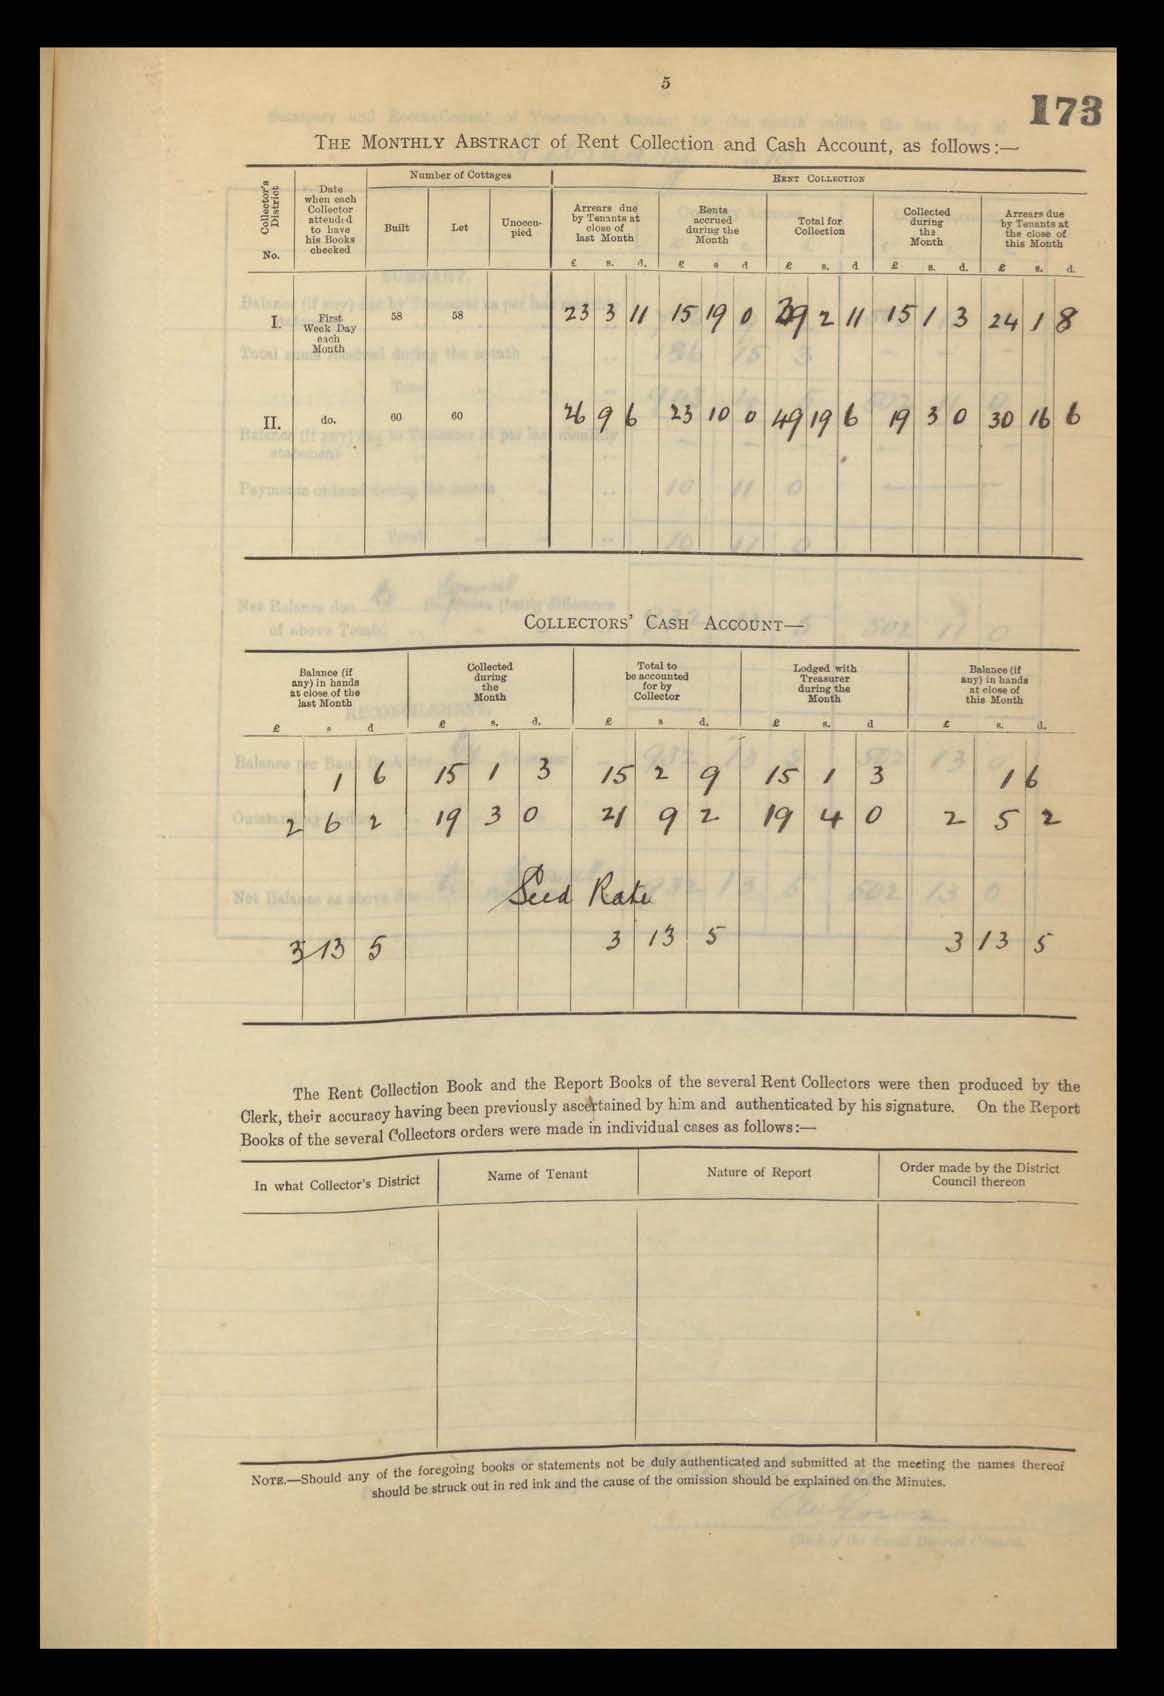 5
173
THE MONTHLY ABSTRACT of Rent Collection and Cash Account, as follows:—
Collector's District No.
Date when each Collector attended to have his Books checked
Number of Cottages
Built
Let
Unoccupied
RENT COLLECTION
Arrears due by Tenants at close of last Month
Rents accrued during the Month
Total for Collection
Collected during the Month
Arrears due by Tenants at the close of this Month
£ s. d. £ s d £ s. d £ s. d. £ s. d.
I. First Week Day each Month 58 58 23 3 11 15 19 0 39 2 11 15 1 3 24 1 8
II. do. 60 60 26 9 6 23 10 0 49 19 6 19 3 0 30 16 6
COLLECTORS' CASH ACCOUNT—
Balance (if any) in hands at close of the last Month
Collected during the Month
Total to be accounted for by Collector
Lodged with Treasurer during the Month
Balance (if any) in hands at close of this Month
£ s d £ s. d. £ s d. £ s. d £ s. d.
1 6 15 1 3 15 2 9 15 1 3 1 6
2 6 2 19 3 0 21 9 2 19 4 0 2 5 2
Seed Rate
3 13 5 3 13 5 3 13 5
The Rent Collection Book and the Report Books of the several Rent Collectors were then produced by the
Clerk, their accuracy having been previously ascertained by him and authenticated by his signature. On the Report
Books of the several Collectors orders were made in individual cases as follows:—
In what Collector's District
Name of Tenant
Nature of Report
Order made by the District Council thereon
NOTE.—Should any of the foregoing books or statements not be duly authenticated and submitted at the meeting the names thereof
should be struck out in red ink and the cause of the omission should be explained on the Minutes.